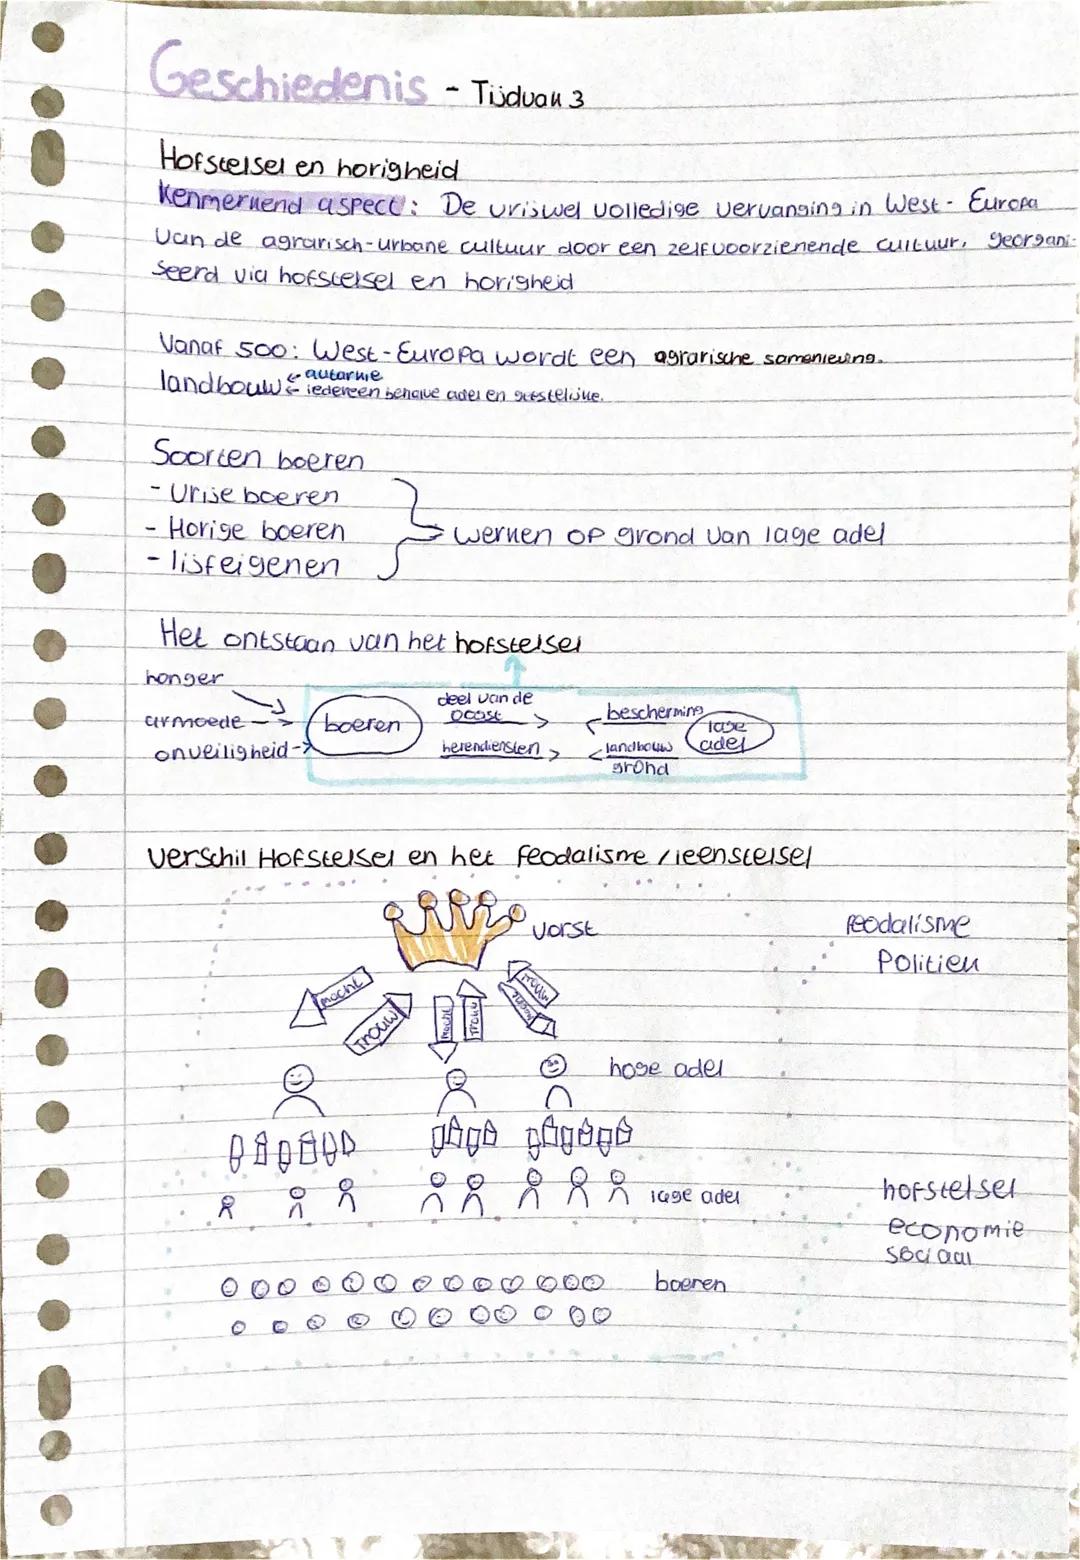 Geschiedenis - Tijdvak 3
Hofstelsel en horigheid
Kenmerkend aspect: De vrijwel volledige vervanging in West-Europa
van de agrarisch-urbane cultuur door een zelfvoorzienende cultuur, georgani-
seerd via hofstelsel en horigheid
Vanaf 500: West-Europa wordt een agrarische samenleving.
landbouw autarkie
iedereen behalve adel en geestelijke.
Soorten boeren
- Vrije boeren
- Horige boeren
werken op grond van lage adel
- lijfeigenen
Het ontstaan van het hofstelsel
honger
armoede
onveiligheid
boeren
deel van de
oogst
herendiensten
bescherming
landbouw
grond
lage
adel
Verschil Hofstelsel en het feodalisme / leenstelsel
vorst
feodalisme
Politiek
macht
trouw
macht
trouw
trouw
macht
hoge adel
lage adel
hofstelsel
economie
sociaal
boeren